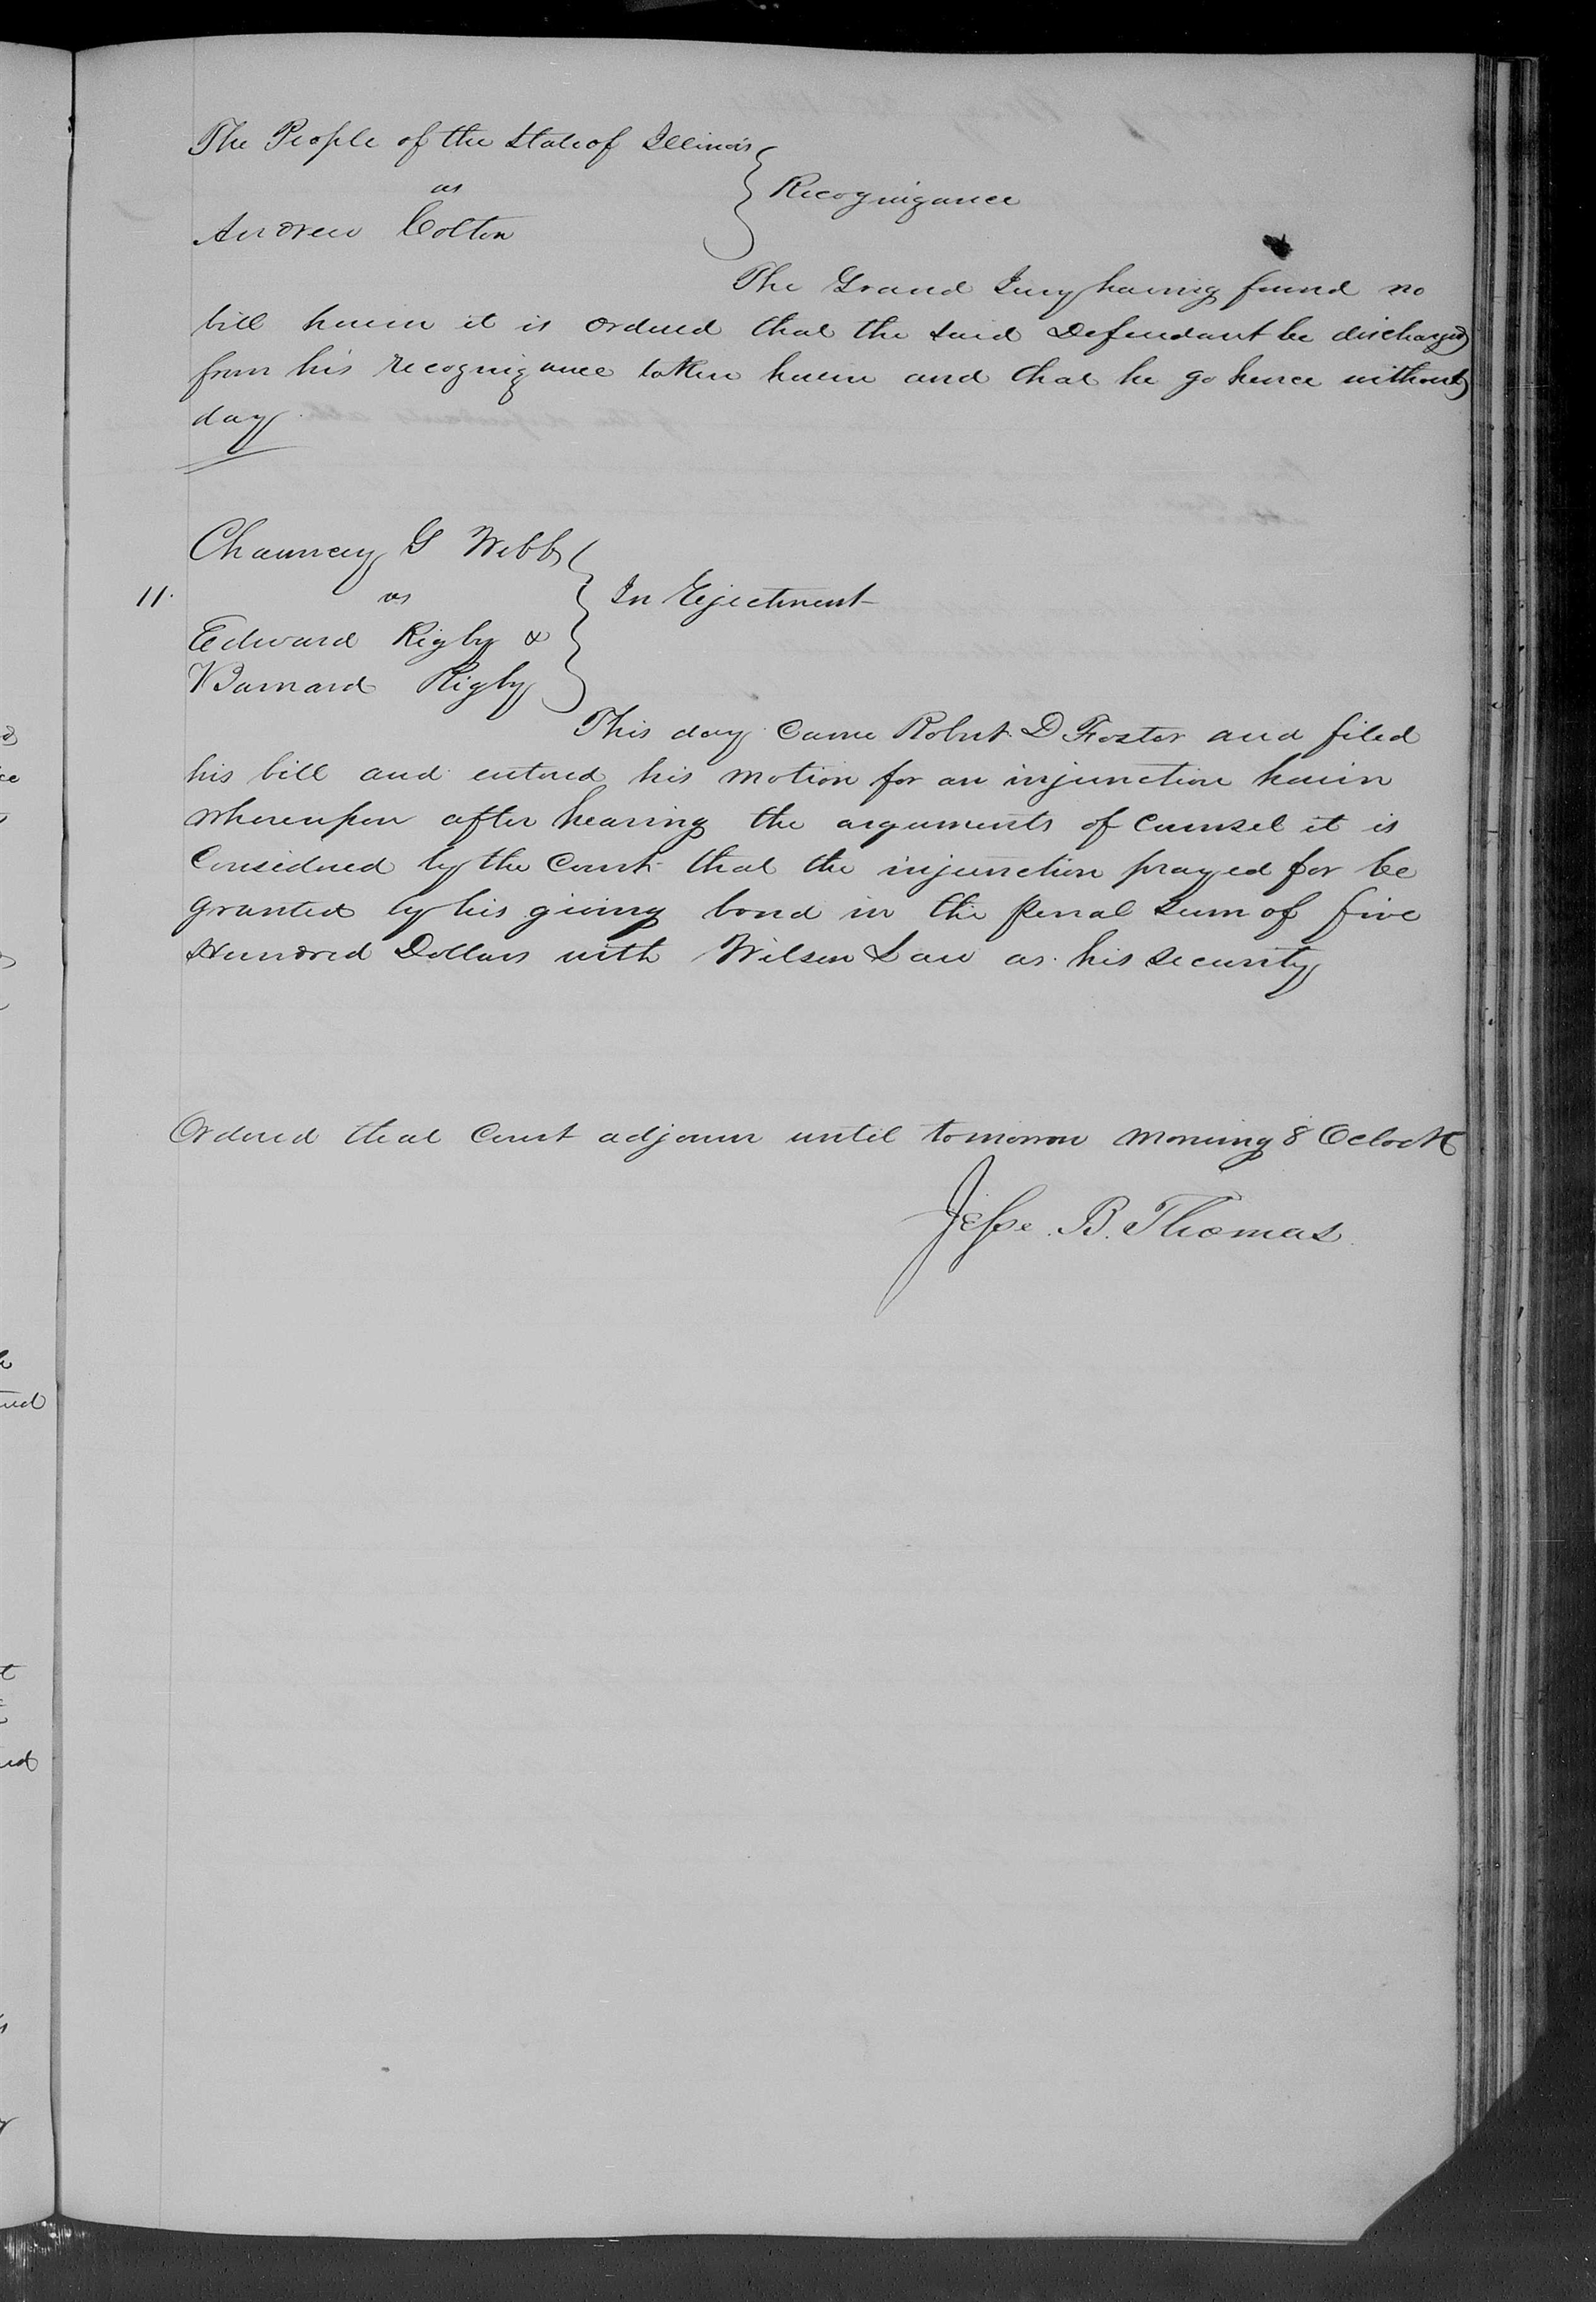 The People of the State of Illinois
vs
Recognizance
Andrew Colton
The Grand Jury having found no
bill herein it is ordered that the said Defendant be discharged
from his recognizance taken herein and that he go hence without
day
Chauncey G Webb
11.
vs
In Ejectment
Edward Rigby &
Barnard Rigby
This day came Robert D Foster and filed
his bill and entered his motion for an injunction herein
whereupon after hearing the arguments of Counsel it is
Considered by the Court that the injunction prayed for be
granted by his giving bond in the penal sum of five
Hundred Dollars with Wilson Law as his security
Ordered that Court adjourn until tomorrow morning 8 Oclock
Jesse B. Thomas